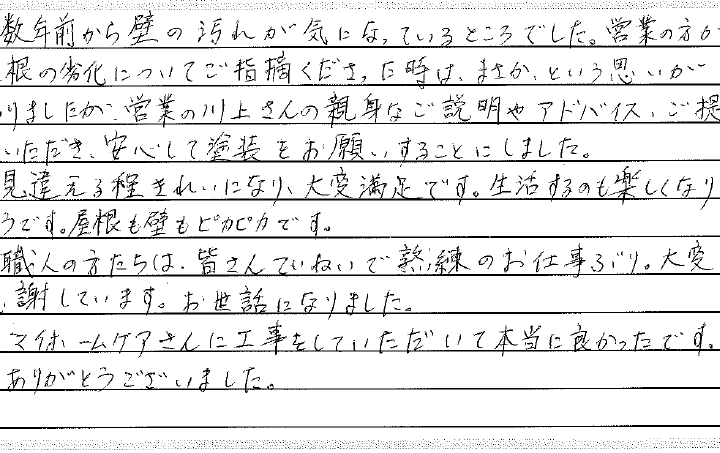 数年前から壁の汚れが気になっているところでした。営業の方が
根の劣化についてご指摘くださった時は、まさか、という思いが
りましたが、営業の川上さんの親身なご説明やアドバイス、ご提
いただき、安心して塗装をお願いすることにしました。
見違える程きれいになり、大変満足です。生活するのも楽しくなり
うです。屋根も壁もピカピカです。
職人の方たちは、皆さんていねいで熟練のお仕事ぶり。大変
謝しています。お世話になりました。
マイホームケアさんに工事をしていただいて本当に良かったです。
ありがとうございました。